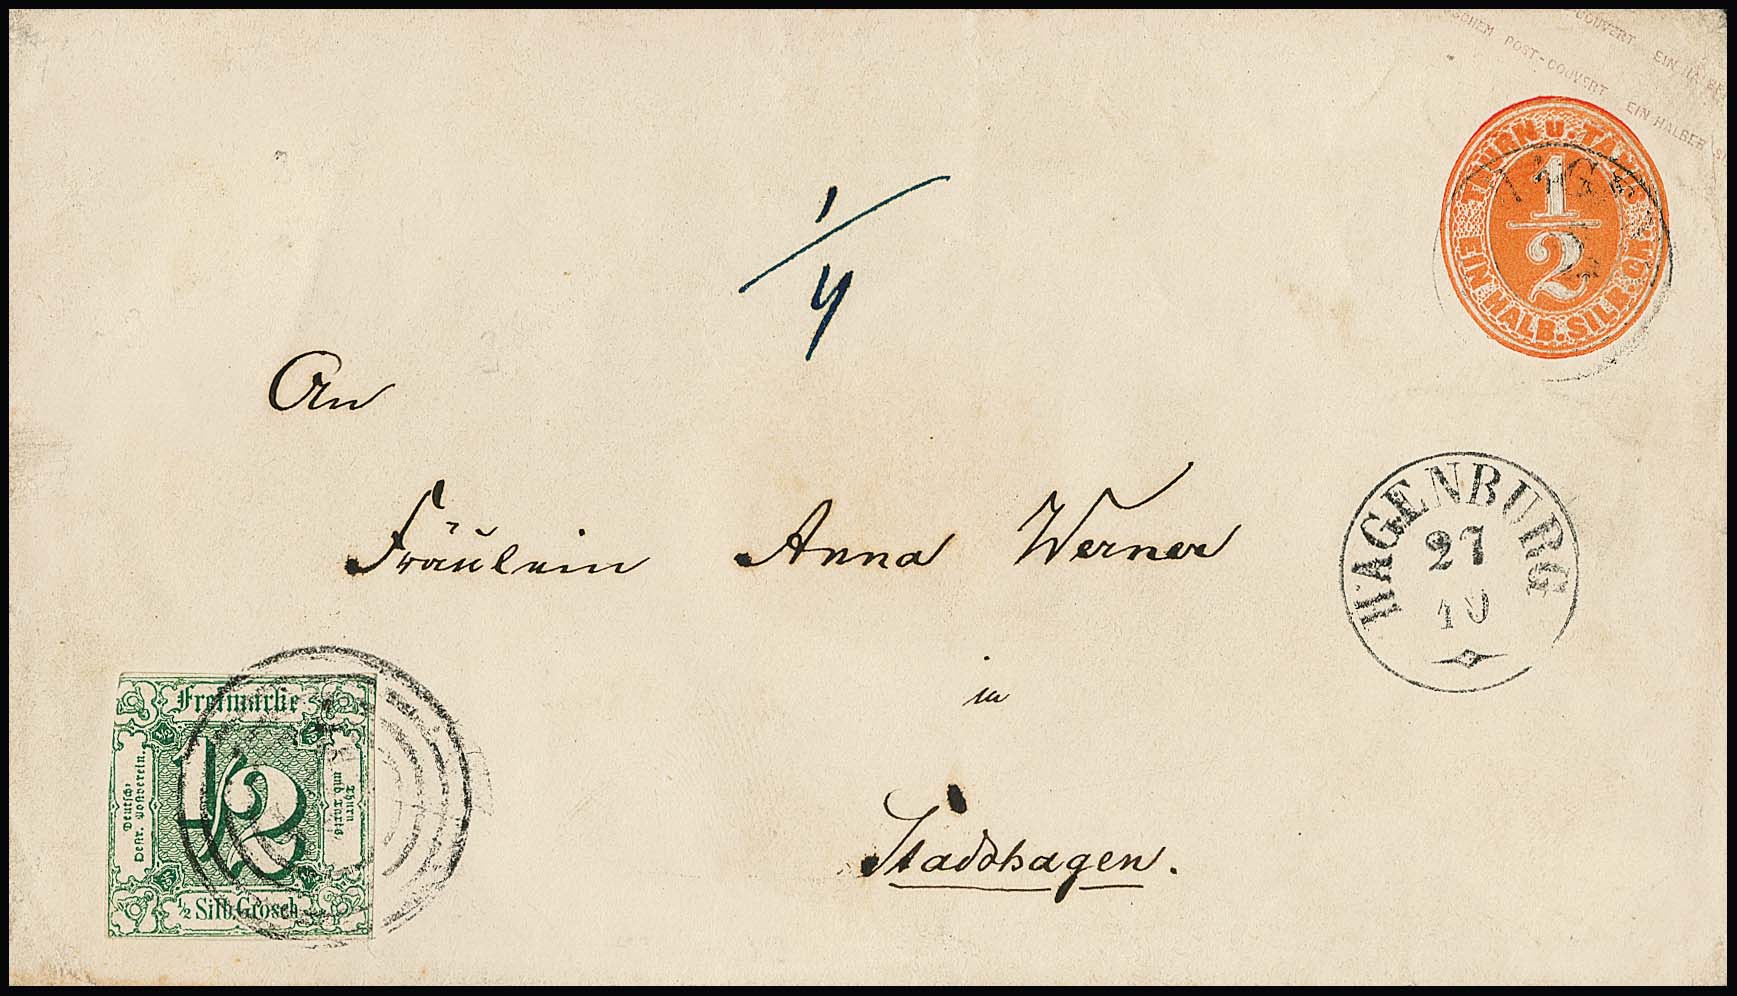 COUVERT EIN HALBER
POST-COUVERT EIN HALBER
THURN u. TAXIS
1/2
EIN HALB. SILB. GR.
1/4
An
Fräulein Anna Werner
HAGENBURG
27
10
in
Stadthagen.
Freimarke
Deutsch-
Oestr. Postverein.
1/2
Thurn
und Taxis
1/2 Silb. Grosch